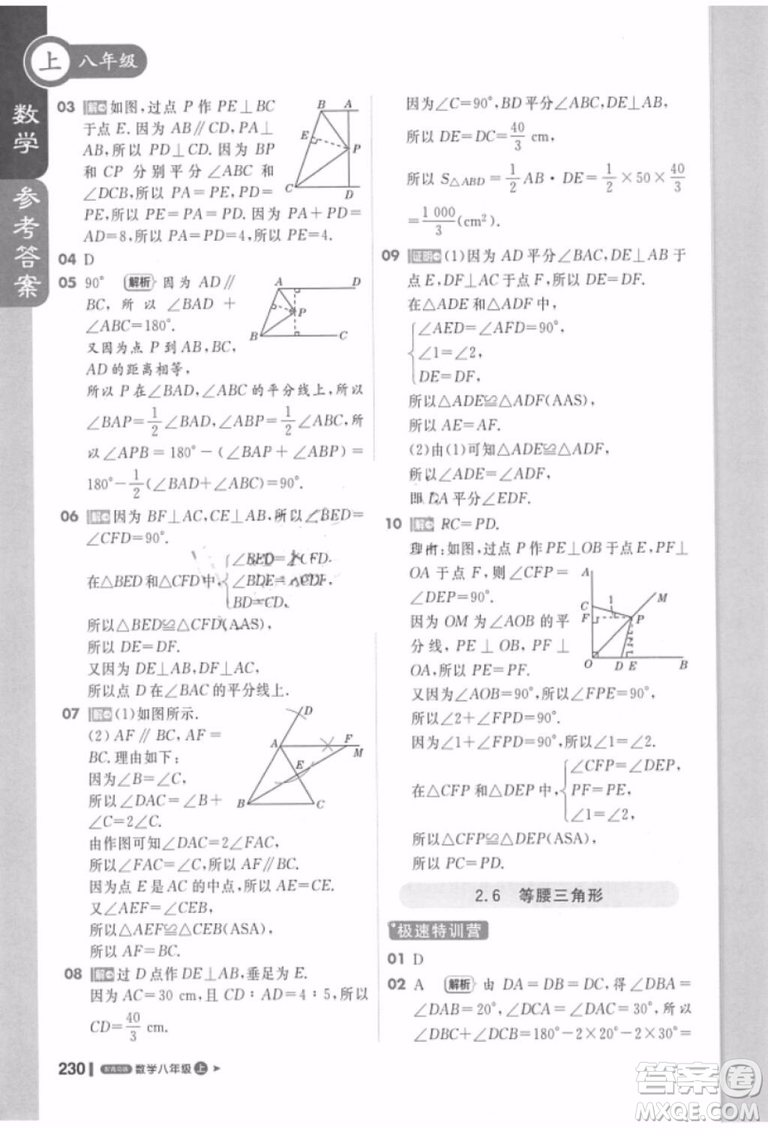 上 八年级
数学 参考答案
03 解 如图,过点 P 作 PE⊥BC
于点 E. 因为 AB∥CD,AD⊥
AB,所以 PD⊥CD. 因为 BP
和 CP 分别平分∠ABC 和
∠DCB,所以 PA=PE,PD=
PE,所以 PA=PE=PD. 因为 PA+PD=
AD=8,所以 PA=PD=4,所以 PE=4.
B A
E
P
C D
04 D
05 90° 解析 因为 AD∥
BC,所以∠BAD+
∠ABC=180°.
又因为点 P 到 AB,BC,
AD 的距离相等,
所以 P 在∠BAD,∠ABC 的平分线上,所以
∠BAP=1/2∠BAD,∠ABP=1/2∠ABC,所
以∠APB=180°-(∠BAP+∠ABP)=
180°-1/2(∠BAD+∠ABC)=90°.
A D
P
B C
06 解 因为 BF⊥AC,CE⊥AB,所以∠BED=
∠CFD=90°.
在△BED 和△CFD 中,
∠BED=∠CFD,
∠BDE=∠CDF,
BD=CD,
所以△BED≌△CFD(AAS),
所以 DE=DF.
又因为 DE⊥AB,DF⊥AC,
所以点 D 在∠BAC 的平分线上.
07 解 (1)如图所示.
(2) AF∥BC, AF=
BC. 理由如下:
因为∠B=∠C,
所以∠DAC=∠B+
∠C=2∠C.
由作图可知∠DAC=2∠FAC,
所以∠FAC=∠C,所以 AF∥BC.
因为点 E 是 AC 的中点,所以 AE=CE.
又因为∠AEF=∠CEB,
所以△AEF≌△CEB(ASA),
所以 AF=BC.
D
A F M
E
B C
08 解 过 D 点作 DE⊥AB,垂足为 E.
因为 AC=30 cm,CD:AD=4:5,所以
CD=40/3 cm.
因为∠C=90°,BD 平分∠ABC,DE⊥AB,
所以 DE=DC=40/3 cm,
所以 S△ABD=1/2 AB·DE=1/2×50×40/3
=1 000/3(cm²).
09 证明 (1)因为 AD 平分∠BAC,DE⊥AB 于
点 E,DF⊥AC 于点 F,
在△ADE 和△ADF 中,
∠AED=∠AFD=90°,
∠1=∠2,
DE=DF,
所以△ADE≌△ADF(AAS),
所以 AE=AF.
(2)由(1)可知△ADE≌△ADF,
所以∠ADE=∠ADF,
即 DA 平分∠EDF.
10 解 PC=PD.
理由:如图,过点 P 作 PE⊥OB 于点 E,PF⊥
OA 于点 F,则∠CFP=
∠DEP=90°.
因为 OM 为∠AOB 的平
分线,所以 PE⊥OB,PF⊥
OA,所以 PE=PF.
又因为∠AOB=90°,
所以∠2+∠FPD=90°.
因为∠1+∠FPD=90°,所以∠1=∠2.
在△CFP 和△DEP 中,
∠CFP=∠DEP,
PF=PE,
∠1=∠2,
所以△CFP≌△DEP(ASA),
所以 PC=PD.
A M
C 1
F P
O D E B
2.6 等腰三角形
极速特训营
01 D
02 A 解析 由 DA=DB=DC,得∠DBA=
∠DAB=20°,∠DCA=∠DAC=30°,所以
∠DBC+∠DCB=180°-2×20°-2×30°=
230 数学八年级 上
答案圈
MXQE.COM